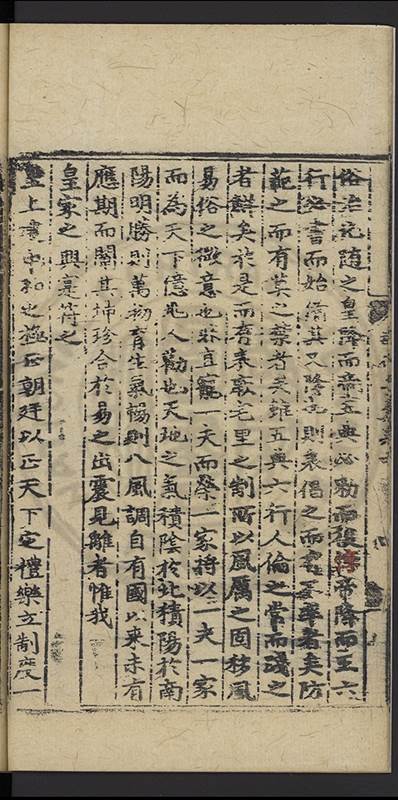 俗治化隨之皇降而帝五典必勑而後淳帝降而王六
行必書而始備其又降也則表倡之而不率者矣防
範之而有莫之禁者矣雖五典六行人倫之常而踐之
者鮮矣於是而有表厥宅里之制所以風厲之固移風
易俗之微意也非直寵一夫而榮一家將以一夫一家
而為天下億兆人勸也天地之氣積陰於北積陽於南
陽明勝則萬物育生氣協則八風調自有國以來未有
應期而闡其坤珍合於易之出震見離者惟我
皇家之興寔符之
皇上秉中和之極正朝廷以正天下定禮樂立制度一